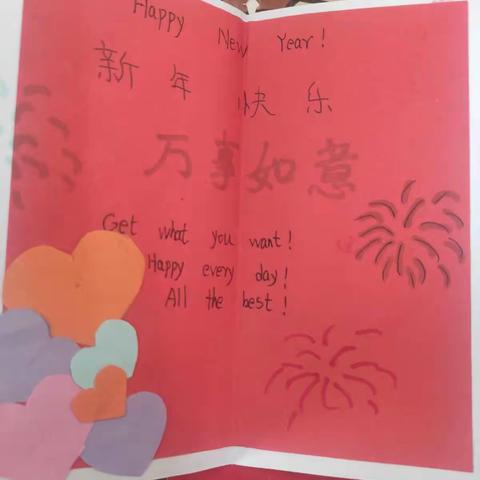 Happy New Year!
新年快乐
万事如意
Get what you want!
Happy every day!
All the best!